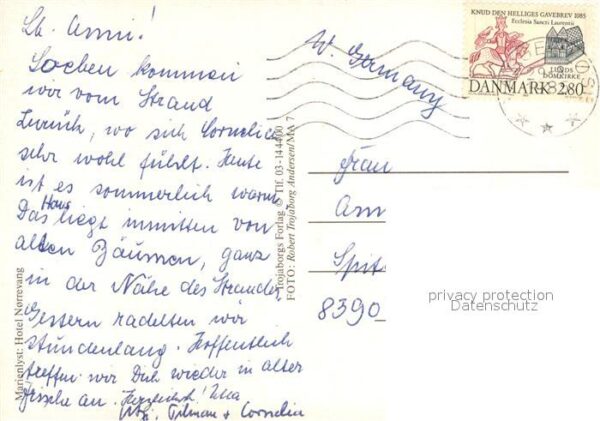 Lb. Anni!
Soeben kommen
wir vom Strand
zurück, wo sich Cornelia
sehr wohl fühlt. Heute
ist es sommerlich warm.
Das Haus liegt inmitten von
alten Bäumen, ganz
in der Nähe des Strandes.
Gestern radelten wir
stundenlang. Hoffentlich
treffen wir Dich wieder in alter
Frische an. Herzlichst!
Tilman + Cornelia
Marienlyst: Hotel Nørrevang
Trojaborgs Forlag © Tlf. 03-144400
FOTO: Robert Trojaborg Andersen/MA 7
W. Germany
KNUD DEN HELLIGES GAVEBREV 1085
Ecclesia Sancti Laurentii
LUNDS
DOMKIRKE
DANMARK 2.80
Frau
Ann
Spit
8390
privacy protection
Datenschutz